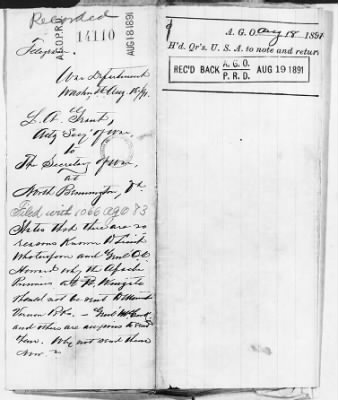 Recorded
A.G.O.P.R.D.
14110
AUG 18 1891
Telegram
War Department
Wash'n, Aug 18/91.
L. A. Grant,
Actg Secy of War,
to
The Secretary of War,
at
North Bennington, Vt.
Filed with 1066 ago 83
States that there are no
reasons known to Lieut
Wotherspoon and Genl O.O.
Howard why the Apache
Prisoners at Ft. Wingate
should not be sent to Mount
Vernon Bks. — Genl
and others are anxious to
them. Why not send them
now.
A. G. O. Aug 18 1891
H'd. Qr's. U. S. A. to note and return
REC'D BACK A. G. O. P. R. D. AUG 19 1891